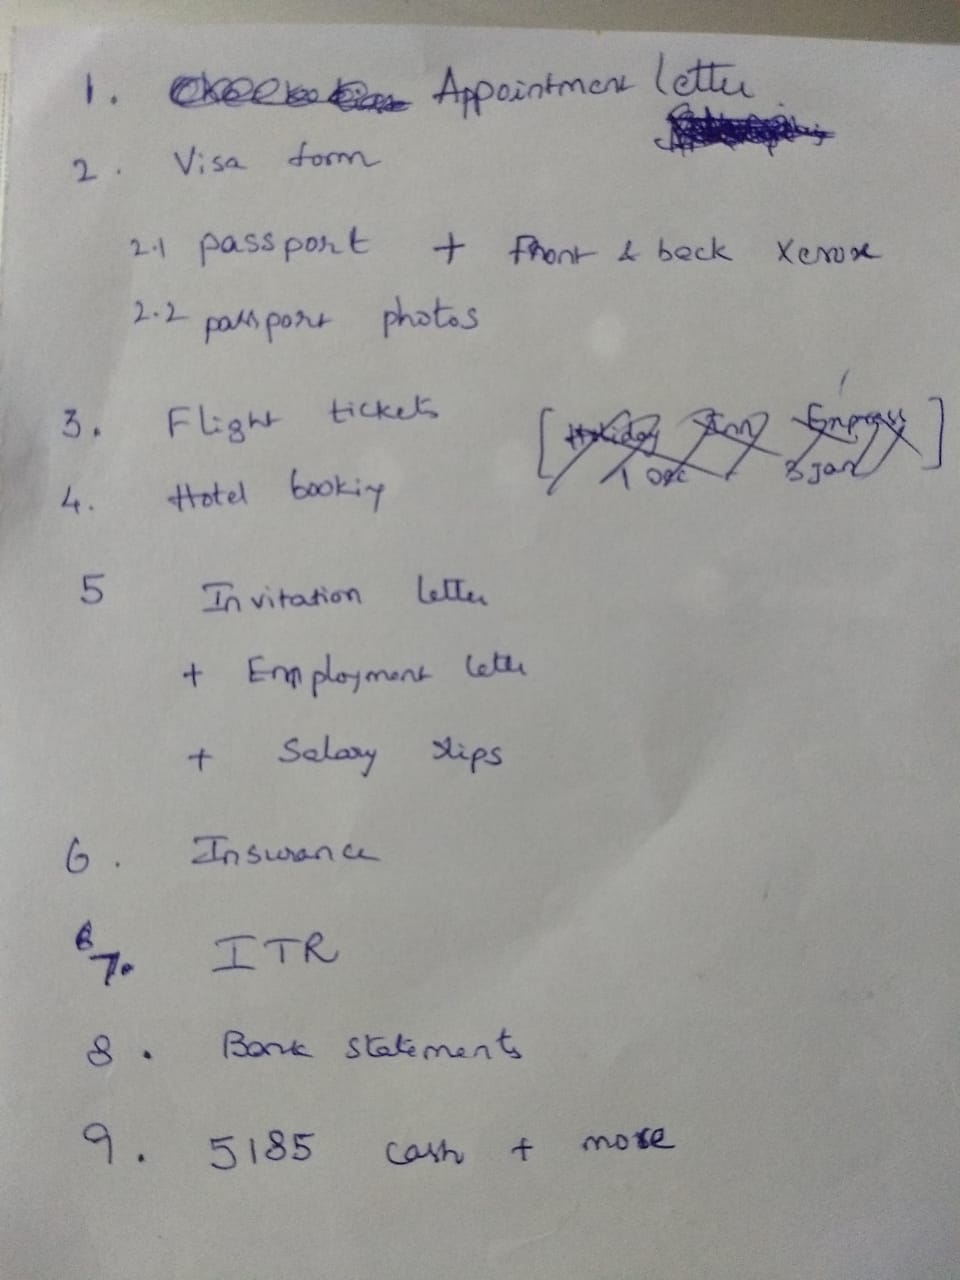 1. Appointment letter
2. Visa form
2.1 passport + front & back xerox
2.2 passport photos
3. Flight tickets
[Holiday Inn Express]
1 Dec 3 Jan
4. Hotel booking
5 Invitation letter
+ Employment letter
+ Salary slips
6. Insurance
7. ITR
8. Bank statements
9. 5185 cash + more